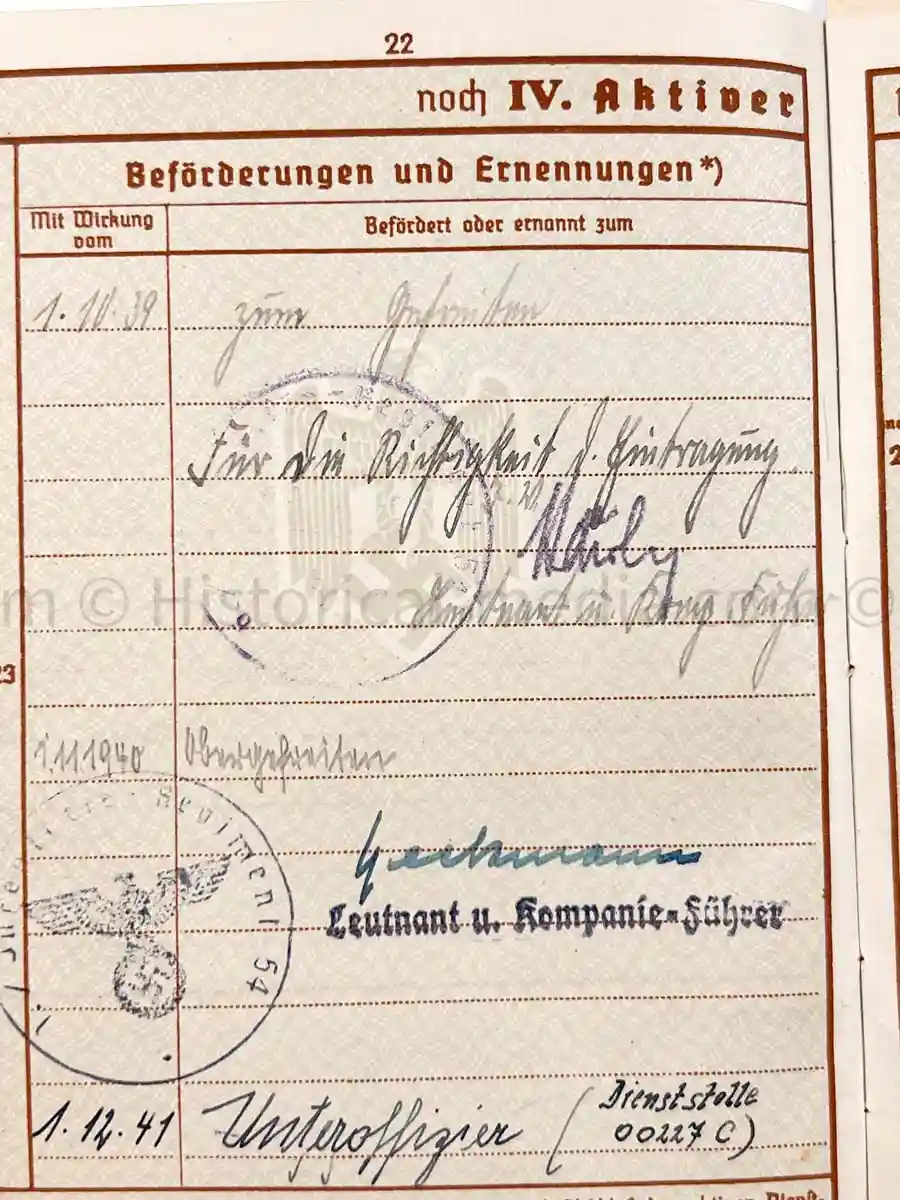 22
noch IV. Aktiver
Beförderungen und Ernennungen*)
Mit Wirkung vom
Befördert oder ernannt zum
1. 10. 39 zum Gefreiten
Für die Richtigkeit d. Eintragung.
Leutnant u. Komp. Führer
© Historical
©
23
1.11.1940 Obergefreiten
Infanterie-Regiment 54
Leutnant u. Kompanie-Führer
1. 12. 41 Unteroffizier (Dienststelle
00227 C)